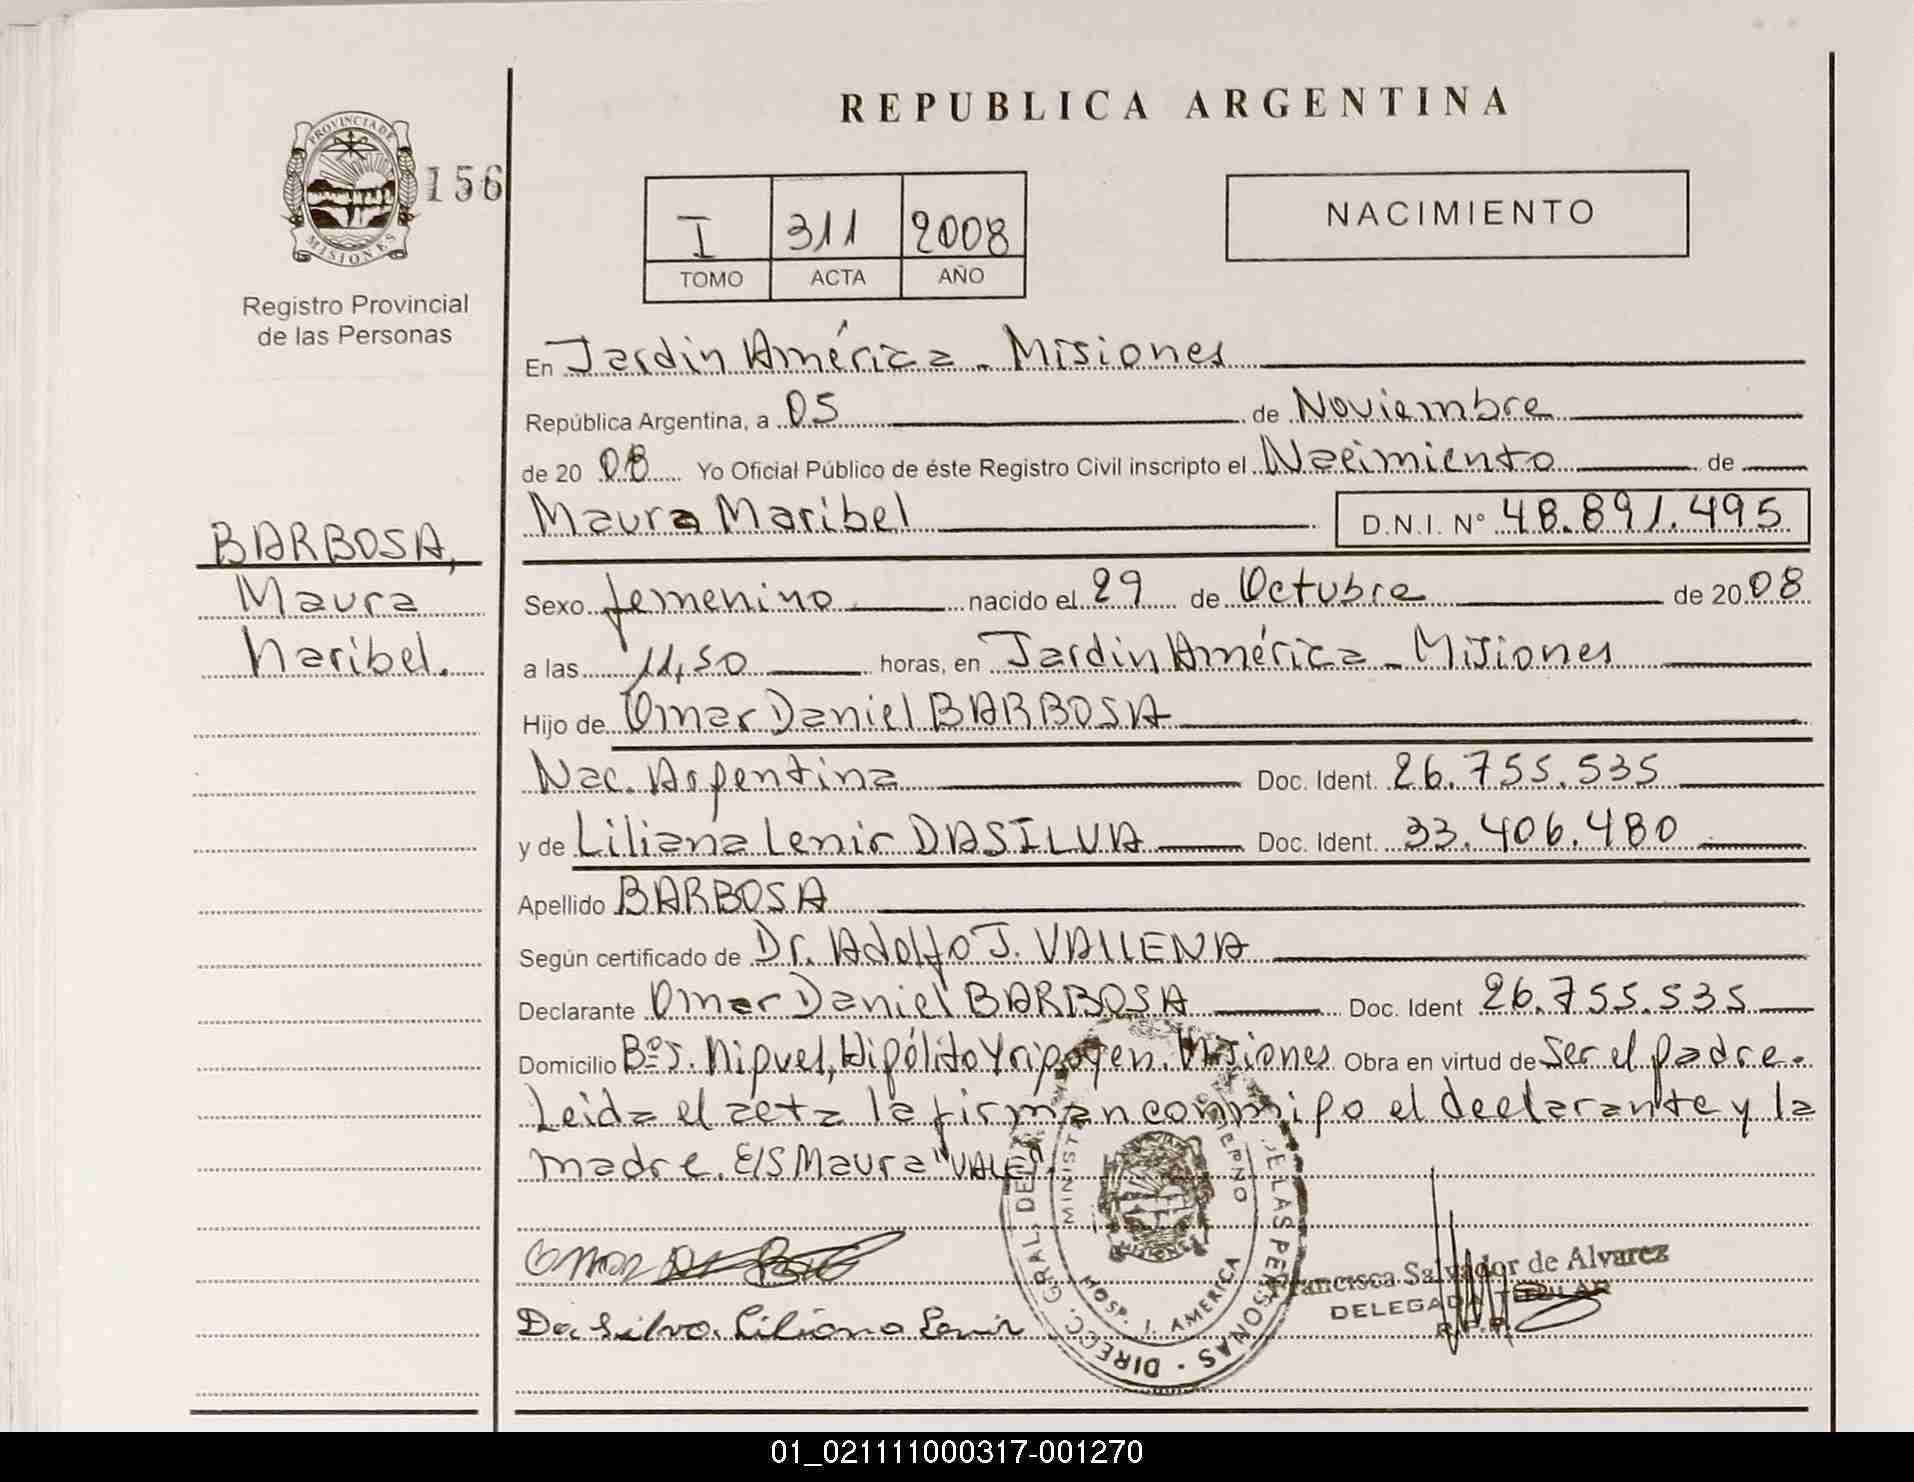 REPUBLICA ARGENTINA
PROVINCIA DE
MISIONES
156
Registro Provincial
de las Personas
I 311 2008
TOMO ACTA AÑO
NACIMIENTO
BARBOSA,
Maura
Maribel.
En Jardin América - Misiones
República Argentina, a 05 de Noviembre
de 20 08 Yo Oficial Público de éste Registro Civil inscripto el Nacimiento de
Maura Maribel D.N.I. N° 48.891.495
Sexo femenino nacido el 29 de Octubre de 20 08
a las 11,50 horas, en Jardin América - Misiones
Hijo de Omar Daniel BARBOSA
Nac. Argentina Doc. Ident. 26.755.535
y de Liliana Lenir DASILVA Doc. Ident. 33.406.480
Apellido BARBOSA
Según certificado de Dr. Adolfo J. VALLENA
Declarante Omar Daniel BARBOSA Doc. Ident 26.755.535
Domicilio B° S. Miguel, Hipólito Yrigoyen. Misiones Obra en virtud de Ser el padre.
Leida el acta la firman conmigo el declarante y la
madre. E/S Maura "VALE".
Omar
Da Silva Liliana Lenir
DIRECC. GRAL. DE LAS PERSONAS
HOSP. J. AMERICA
MISIONES
Francisca Salvador de Alvarez
DELEGADA TITULAR
01_021111000317-001270